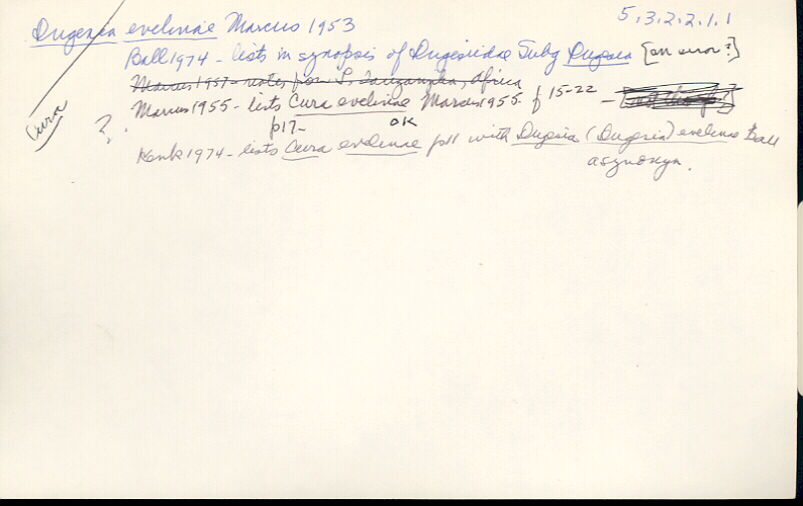 5.3.2.2.1.1
Dugesia evelinae Marcus 1953
Ball 1974 - lists in synopsis of Dugesiidae Subg Dugesia [an error?]
Marcus 1957 - notes from L. Tanganyka, Africa
Marcus 1955 - lists Cura evelinae Marcus 1955. f 15-22 -
p17- OK
Cura
?
Kenk 1974 - lists Cura evelinae p11 with Dugesia (Dugesia) evelinae Ball
a synonym.